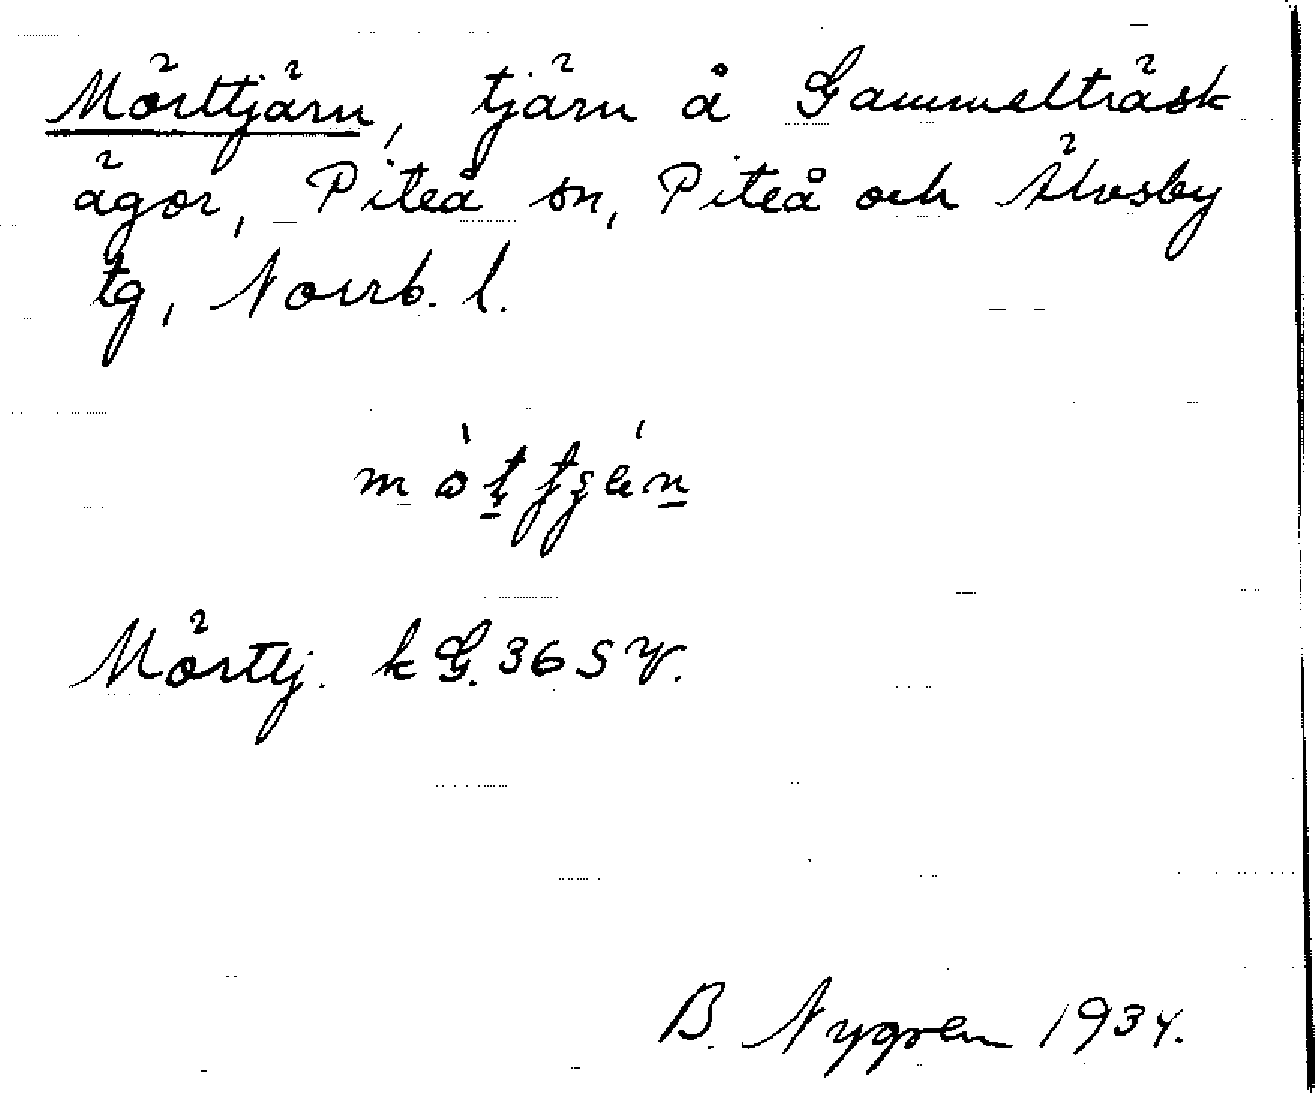 Mörttjärn, tjärn å Gammelträsk
ägor, Piteå sn, Piteå och Älvsby
tg, Norrb. l.
Mörttj. k G. 36 S V.
B. Nygren 1934.